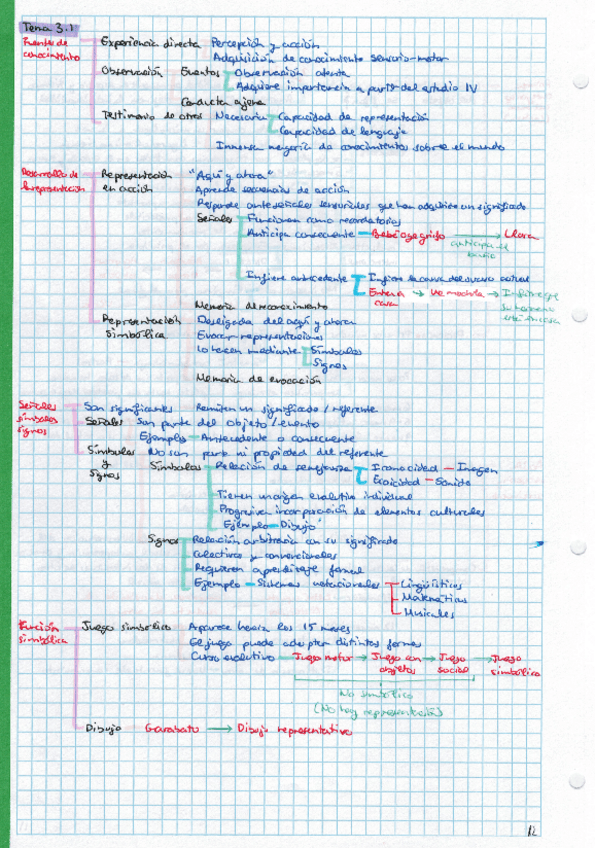 Tema 3.1
Fuentes de conocimiento
Experiencia directa Percepción y acción
Adquisición de conocimiento sensorio-motor
Observación Eventos Observación atenta
Adquiere importancia a partir del estudio IV
Conducta ajena
Testimonio de otros Necesaria Capacidad de representación
Capacidad de lenguaje
Inmensa mayoría de conocimientos sobre el mundo
Desarrollo de la representación
Representación en acción "Aquí y ahora"
Aprende secuencias de acción
Responde ante señales sensoriales que han adquirido un significado
Señales Funcionan como recordatorios
Anticipa consecuente Bebé oye grifo → Llora
anticipa el baño
Infiere antecedente Infiere la causa del suceso actual
Entra a casa → Ve mochila → Infiere que su hermano está en casa
Memoria de reconocimiento
Representación simbólica Desligada del aquí y ahora
Evocar representaciones
Lo hacen mediante Símbolos
Signos
Memoria de evocación
Señales símbolos signos
Son significantes Remiten un significado / referente
Señales Son parte del objeto / evento
Ejemplo Antecedente o consecuente
Símbolos y signos No son parte ni propiedad del referente
Símbolos Relación de semejanza Iconocidad - Imagen
Ecoicidad - Sonido
Tienen un origen evolutivo individual
Progresiva incorporación de elementos culturales
Ejemplo Dibujo
Signos Relación arbitraria con su significado
Colectivos y convencionales
Requieren aprendizaje formal
Ejemplo Sistemas notacionales Lingüísticos
Matemáticos
Musicales
Función simbólica
Juego simbólico Aparece hacia los 15 meses
El juego puede adoptar distintas formas
Curso evolutivo Juego motor → Juego con objetos → Juego social → Juego simbólico
No simbólico
(No hay representación)
Dibujo Garabato → Dibujo representativo
12